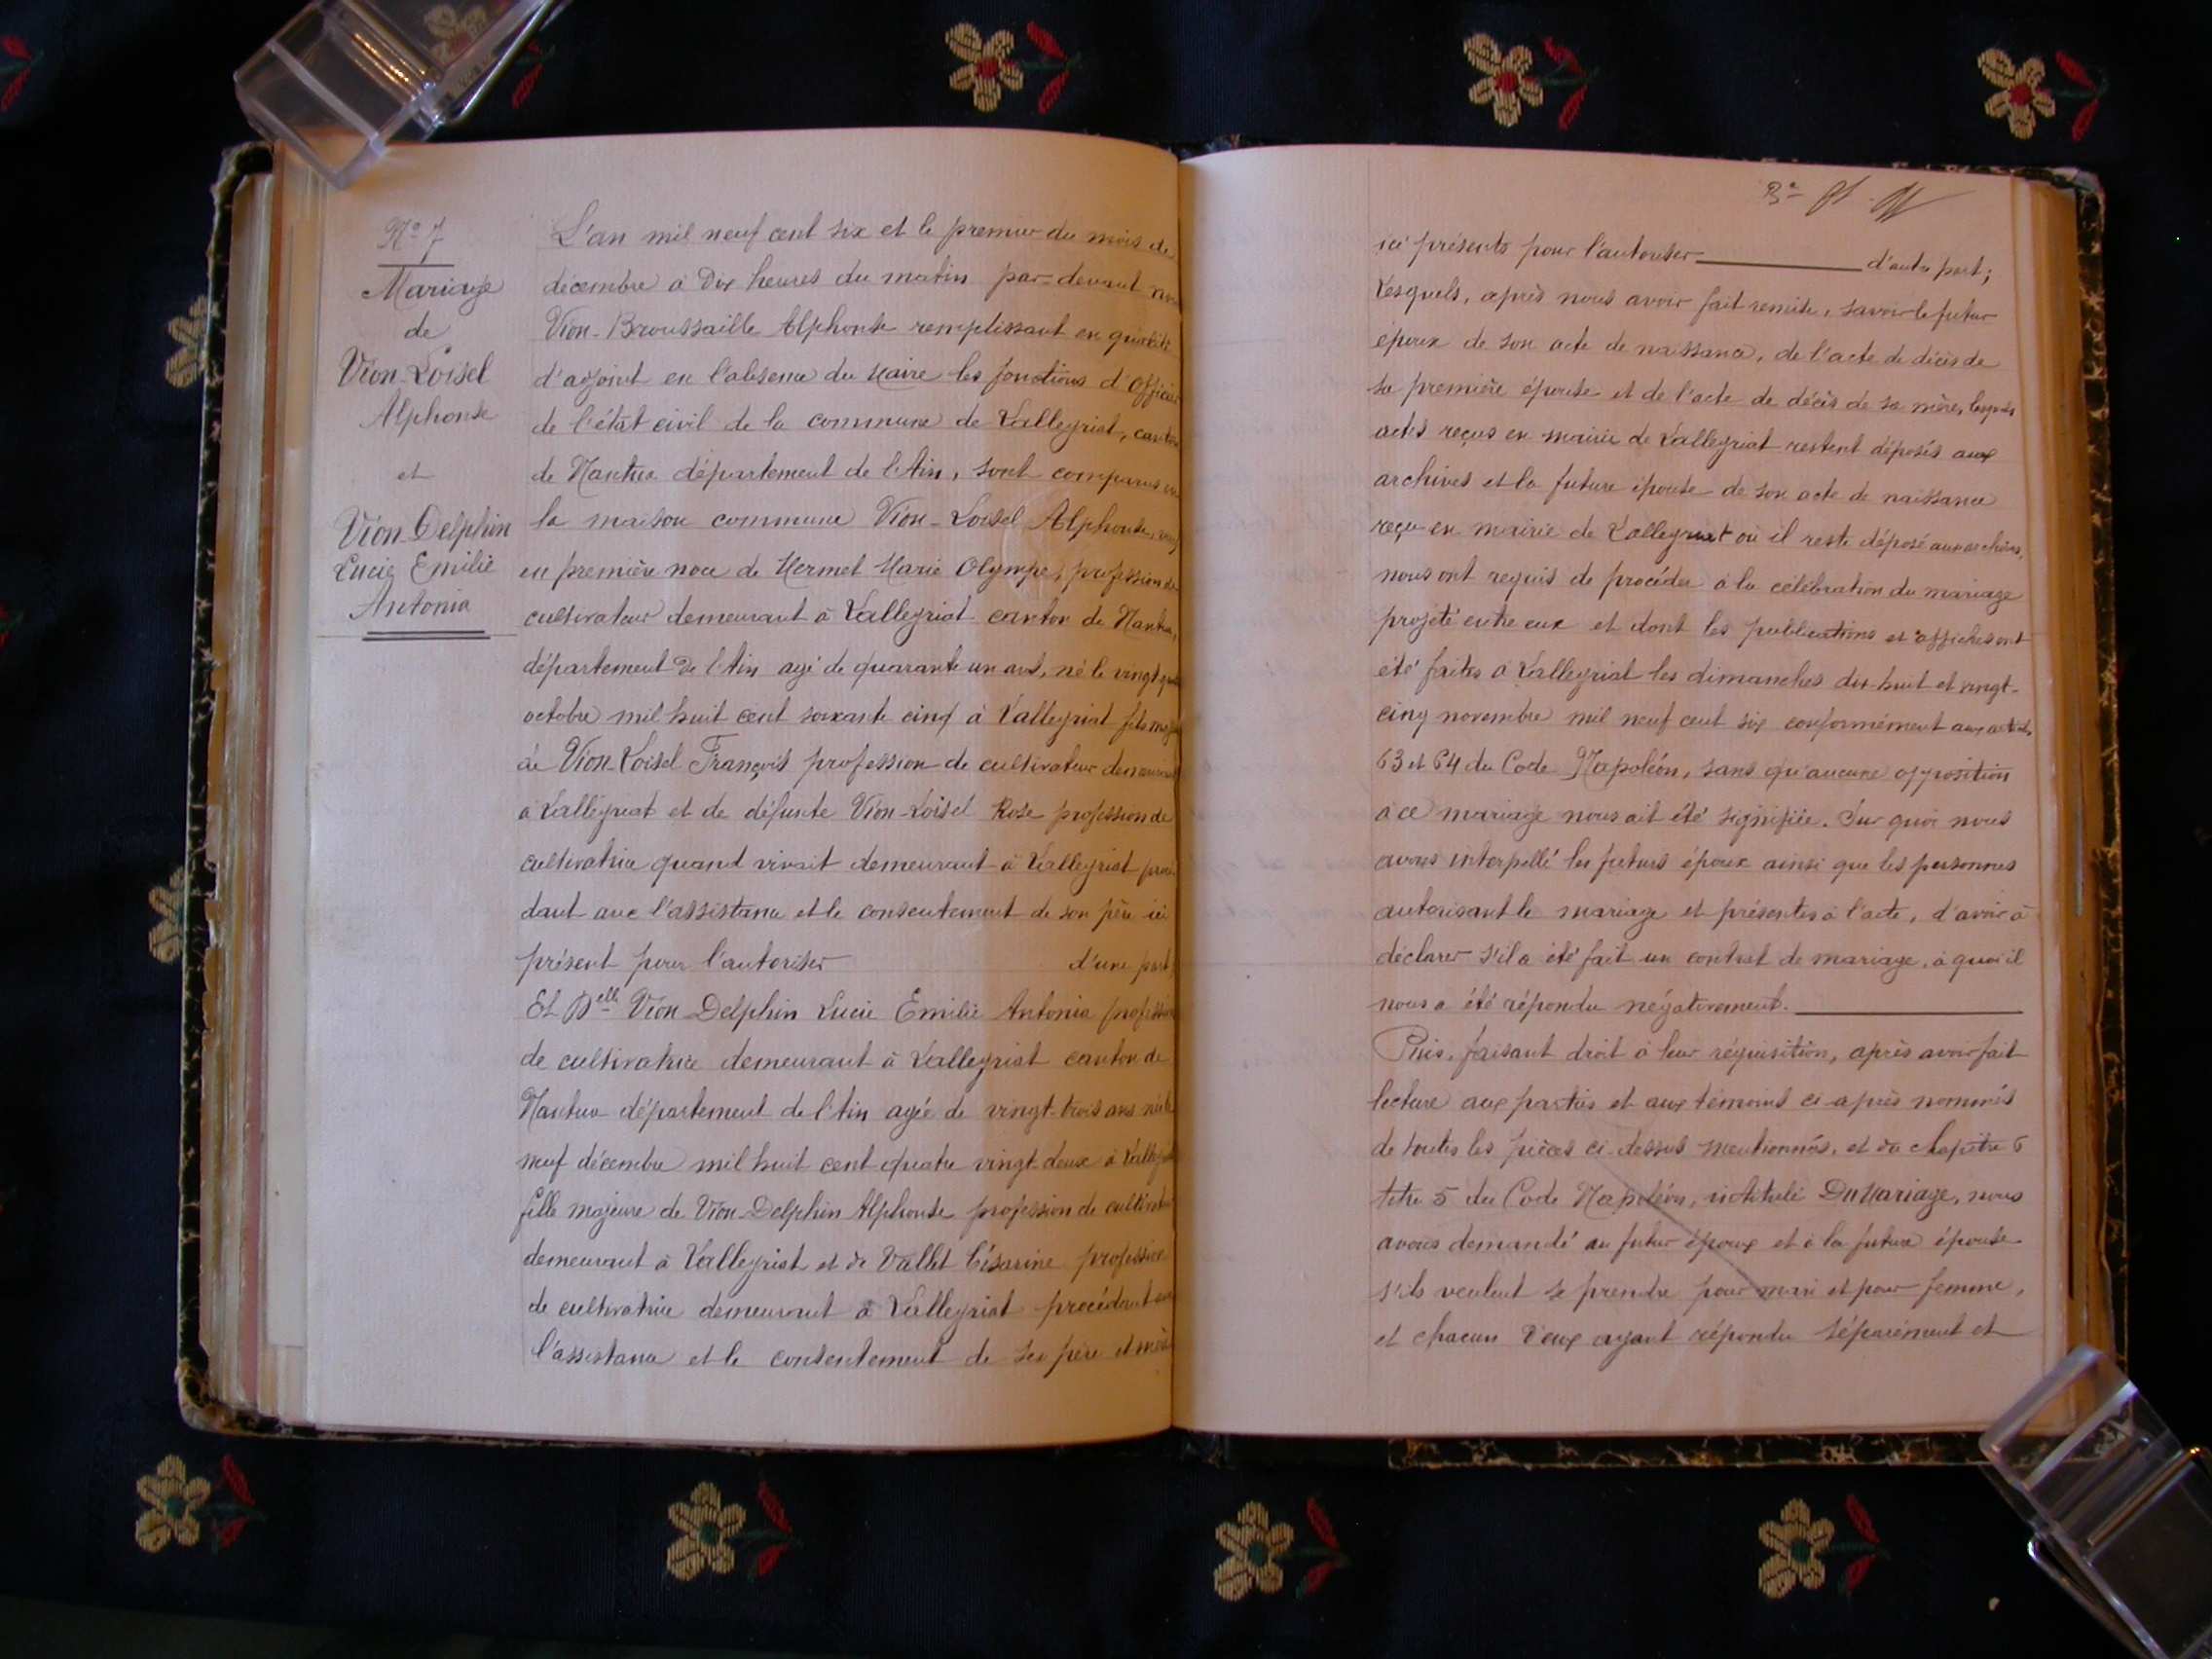 N° 7
Mariage
de
Vion-Loisel
Alphonse
et
Vion-Delphin
Lucie Emilie
Antonia
L'an mil neuf cent six et le premier du mois de
décembre à Dix heures du matin par-devant nous
Vion-Broussaille Alphonse remplissant en qualité
d'adjoint en l'absence du Maire les fonctions d'Officier
de l'état civil de la commune de Lalleyriat, canton
de Nantua département de l'Ain, sont comparus en
la maison commune Vion-Loisel Alphonse, veuf
en première noce de Mermet Marie Olympe, profession de
cultivateur demeurant à Lalleyriat canton de Nantua,
département de l'Ain agé de quarante un ans, né le vingt
octobre mil huit cent soixante cinq à Lalleyriat fils majeur
de Vion-Loisel François profession de cultivateur demeurant
à Lalleyriat et de défunte Vion-Loisel Rose profession de
cultivatrice quand vivait demeurant à Lalleyriat procé
dant avec l'assistance et le consentement de son père ici
présent pour l'autoriser d'une part,
Et Delle Vion-Delphin Lucie Emilie Antonia profession
de cultivatrice demeurant à Lalleyriat canton de
Nantua département de l'Ain agée de vingt-trois ans née le
neuf décembre mil huit cent quatre vingt deux à Lalleyriat
fille majeure de Vion-Delphin Alphonse profession de cultivateur
demeurant à Lalleyriat et de Vallet Césarine profession
de cultivatrice demeurant à Lalleyriat procédant avec
l'assistance et le consentement de ses père et mère
ici présents pour l'autoriser d'autre part;
Lesquels, après nous avoir fait remise, savoir le futur
époux de son acte de naissance, de l'acte de décès de
sa première épouse et de l'acte de décès de sa mère, lesquels
actes reçus en mairie de Lalleyriat restent déposés aux
archives et la future épouse de son acte de naissance
reçu en mairie de Lalleyriat où il reste déposé aux archives,
nous ont requis de procéder à la célébration du mariage
projeté entre eux et dont les publications et affiches ont
été faites à Lalleyriat les dimanches dix-huit et vingt-
cinq novembre mil neuf cent six conformément aux articles
63 et 64 du Code Napoléon, sans qu'aucune opposition
à ce mariage nous ait été signifiée. Sur quoi nous
avons interpellé les futurs époux ainsi que les personnes
autorisant le mariage et présentes à l'acte, d'avoir à
déclarer s'il a été fait un contrat de mariage, à quoi il
nous a été répondu négativement.
Puis, faisant droit à leur réquisition, après avoir fait
lecture aux parties et aux témoins ci-après nommés
de toutes les pièces ci-dessus mentionnés, et du chapitre 6
titre 5 du Code Napoléon, intitulé Du Mariage, nous
avons demandé au futur époux et à la future épouse
s'ils veulent se prendre pour mari et pour femme,
et chacun d'eux ayant répondu séparément et